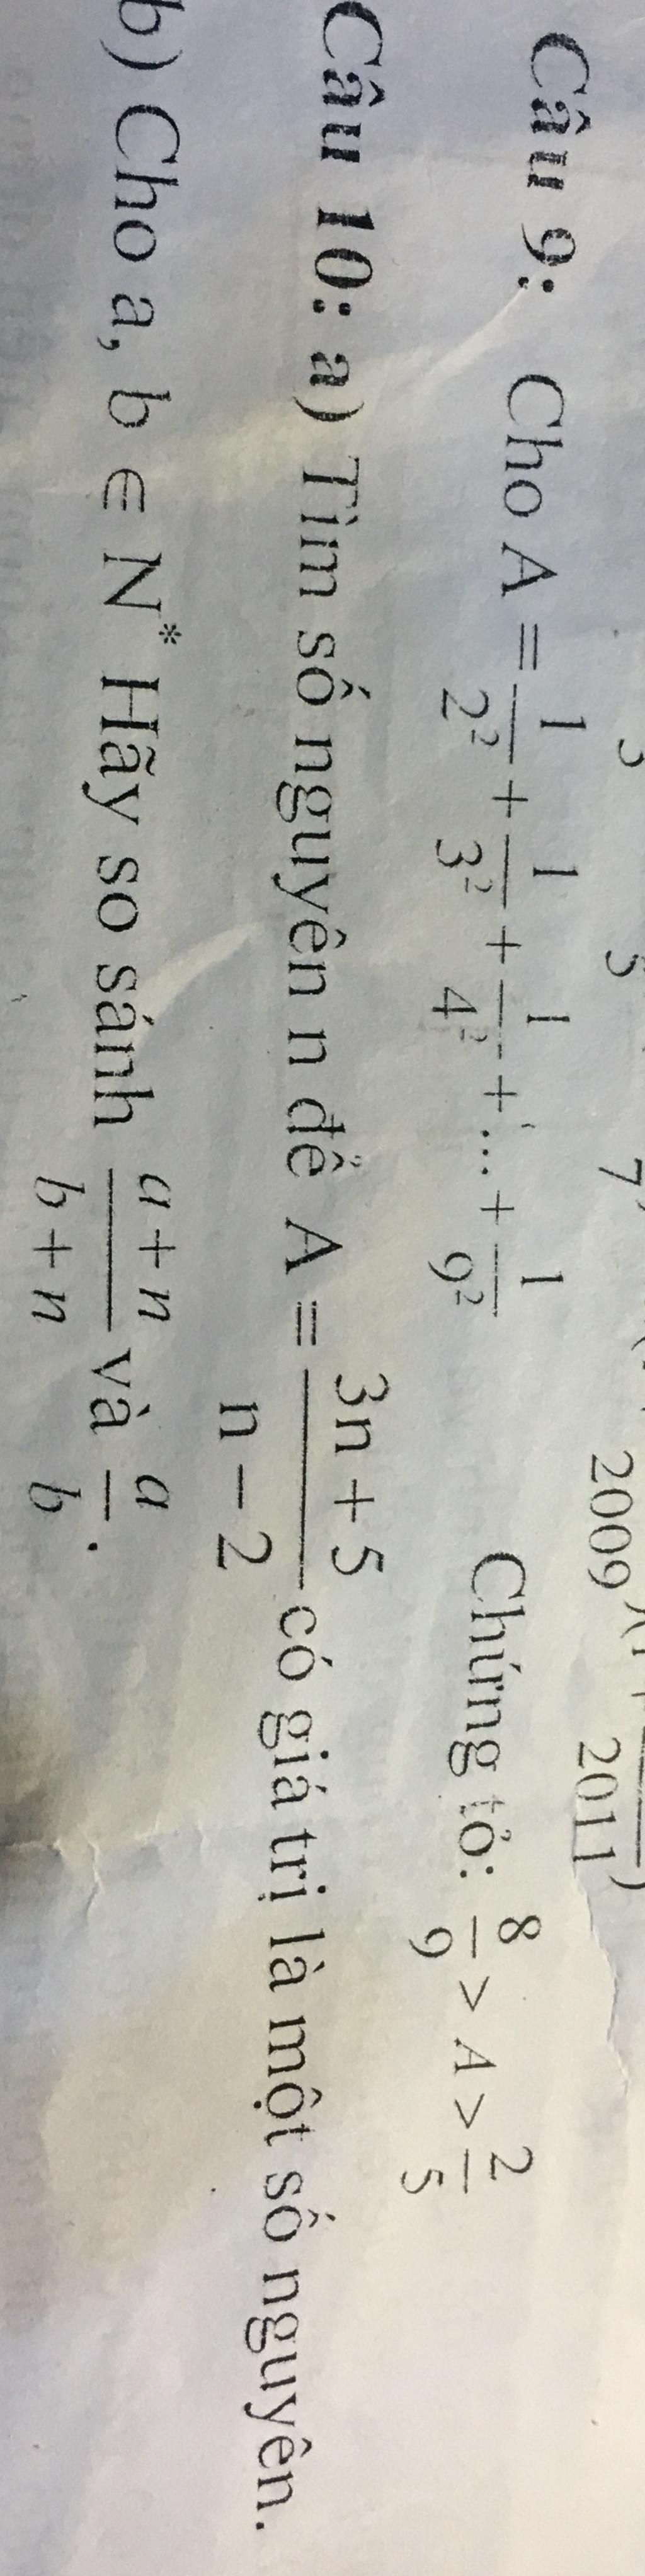 2009 2011
Câu 9: Cho A = 1/2² + 1/3² + 1/4² + ... + 1/9² Chứng tỏ: 8/9 > A > 2/5
Câu 10: a) Tìm số nguyên n để A = (3n + 5)/(n - 2) có giá trị là một số nguyên.
b) Cho a, b ∈ N* Hãy so sánh (a + n)/(b + n) và a/b.